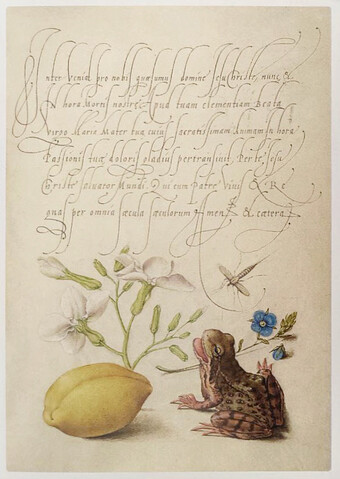 nter veniat pro nobis quæsumus domine Iesu Christe, nunc &
In hora Mortis nostræ, apud tuam clementiam Beata
Virgo Maria Mater tua, cuius sacratissimam Animam in hora
Passionis tuæ doloris gladius pertransivit. Per te, Iesu
Christe Salvator Mundi. Qui cum Patre Vivis & Re
gnas per omnia sæcula sæculorum Amen. & cætera